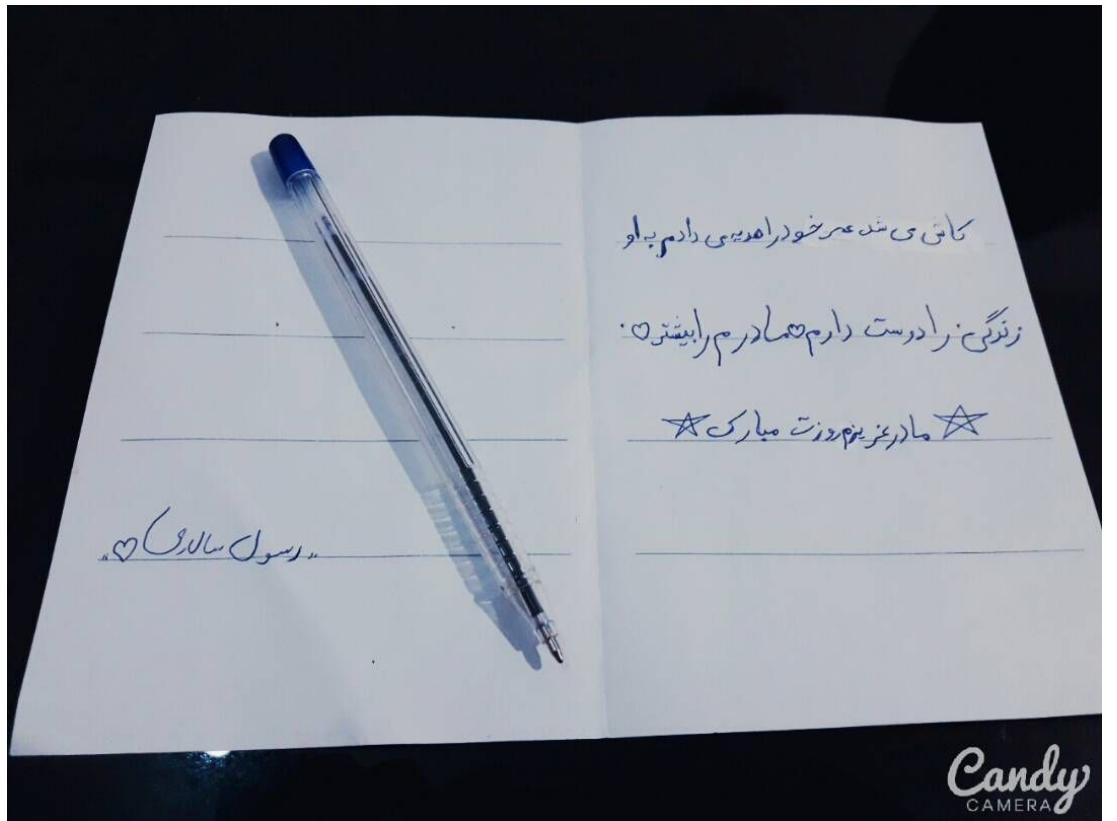 کاش می شد عمر خود را هدیه می دادم به او
زندگی را دوست دارم♡مادرم را بیشتر♡.
☆ مادر عزیزم روزت مبارک ☆
"رسول سالاری♡"
Candy
CAMERA